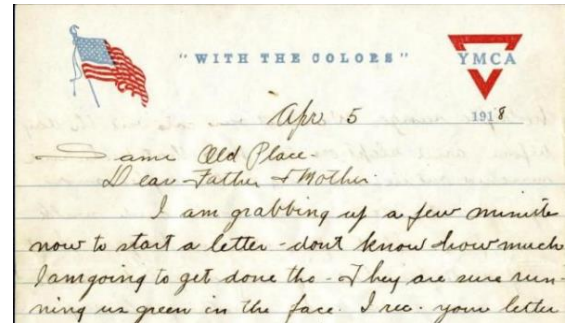 "WITH THE COLORS"
YMCA
Apr. 5 1918
Same Old Place
Dear Father & Mother.
I am grabbing up a few minute
now to start a letter - dont know how much
I am going to get done tho - They are sure run-
ning us green in the face. I rec. your letter